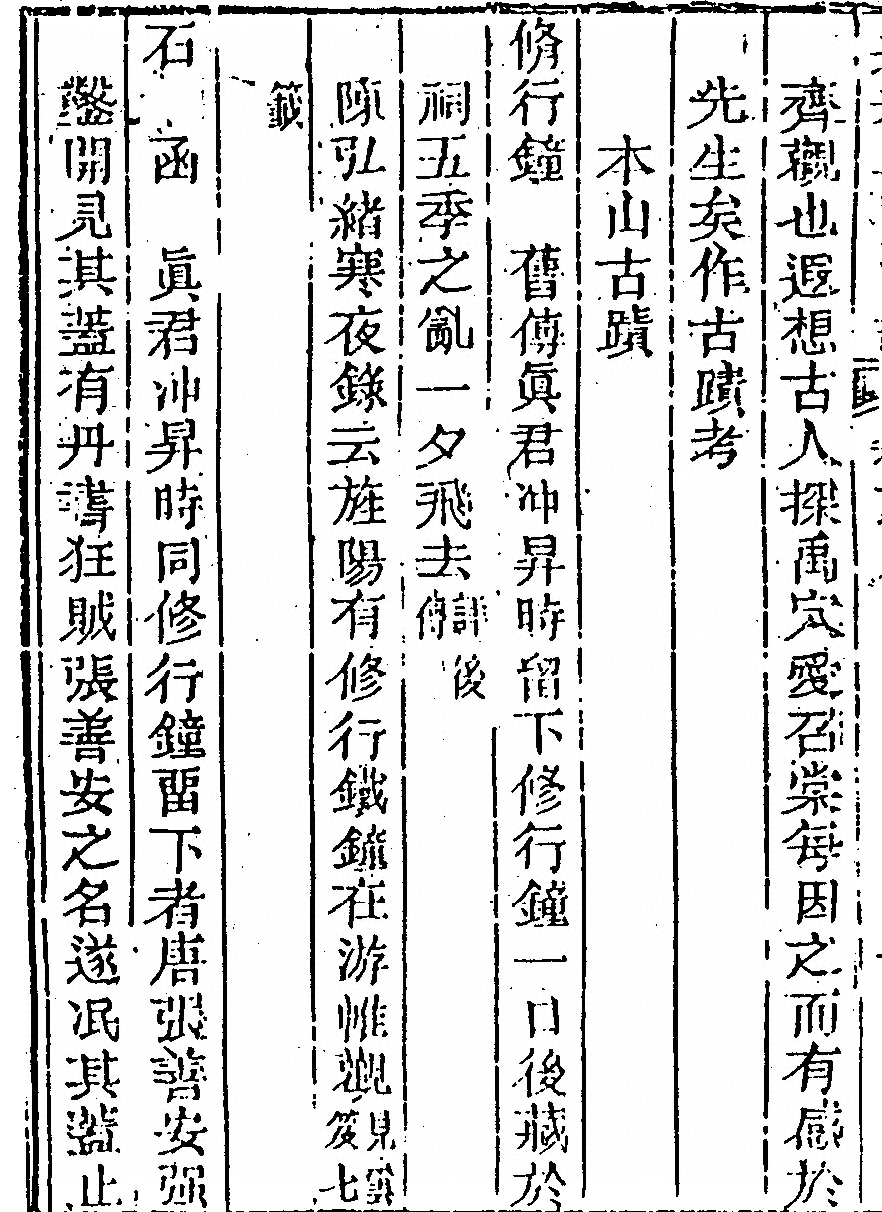 齊觀也遐想古人探禹穴愛召棠每因之而有感於
先生矣作古蹟考
本山古蹟
脩行鐘 舊傳眞君冲昇時留下修行鐘一口後藏於
祠五季之亂一夕飛去詳後傳
陳弘緒寒夜錄云旌陽有修行鐵鐘在游帷觀見雲笈七
籖
石函 眞君冲昇時同修行鐘留下者唐張善安强
鑿開見其蓋有丹書狂賊張善安之名遂泯其蓋止